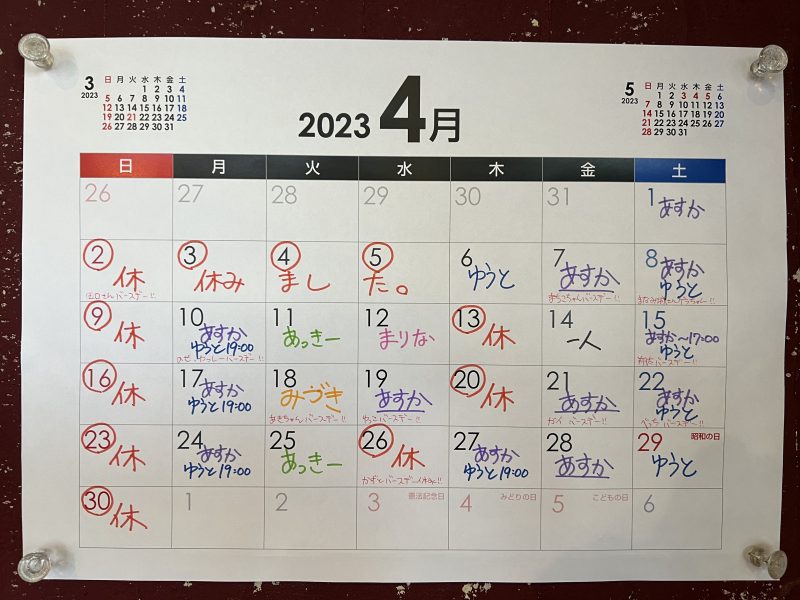 3
2023
日 月 火 水 木 金 土
1 2 3 4
5 6 7 8 9 10 11
12 13 14 15 16 17 18
19 20 21 22 23 24 25
26 27 28 29 30 31
2023 4月
5
2023
日 月 火 水 木 金 土
1 2 3 4 5 6
7 8 9 10 11 12 13
14 15 16 17 18 19 20
21 22 23 24 25 26 27
28 29 30 31
日 月 火 水 木 金 土
26 27 28 29 30 31 1
あすか
2 3 4 5 6 7 8
休 休み まし た。 ゆうと あすか あすか
ゆうと
バースデー!!
9 10 11 12 13 14 15
休 あすか あっきー まりな 休 一人 あすか〜17:00
ゆうと19:00 ゆうと
バースデー!!
16 17 18 19 20 21 22
休 あすか みづき あすか 休 あすか あすか
ゆうと19:00 ゆうと
バースデー!!
23 24 25 26 27 28 29 昭和の日
休 あすか あっきー 休 あすか あすか ゆうと
ゆうと19:00 ゆうと19:00
30 1 2 3 憲法記念日 4 みどりの日 5 こどもの日 6
休